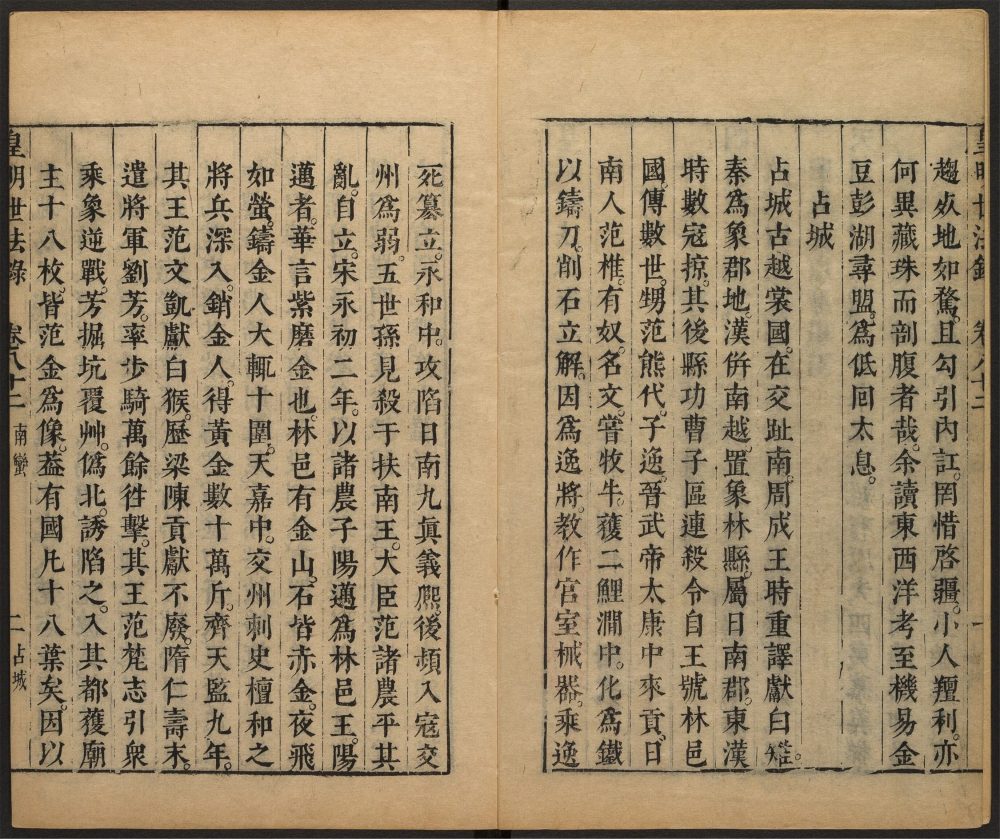 皇明世法錄 卷八十二 一
趨如地如騖。且勾引內訌。罔惜啓疆。小人擅利。亦
何異藏珠而剖腹者哉。余讀東西洋考至機易金
豆彭湖尋盟。爲低回太息。
占城
占城古越裳國。在交趾南。周成王時重譯獻白雉。
秦爲象郡地。漢併南越。置象林縣。屬日南郡。東漢
時數寇掠。其後縣功曹子區連殺令自王號林邑
國。傳數世。甥范熊代。子逸。晉武帝太康中來貢。日
南人范椎。有奴名文。嘗牧牛。獲二鯉澗中。化爲鐵
以鑄刀。削石立解。因爲逸將。教作官室械器。乘逸
死簒立。永和中。攻陷日南九眞義熈。後頻入寇交
州爲弱。五世孫見殺于扶南王。大臣范諸農平其
亂。自立。宋永初二年。以諸農子陽邁爲林邑王。陽
邁者。華言紫磨金也。林邑有金山。石皆赤金。夜飛
如螢。鑄金人大輒十圍。天嘉中。交州刺史檀和之
將兵深入。銷金人。得黃金數十萬斤。齊天監九年。
其王范文凱獻白猴。歷梁陳貢獻不廢。隋仁壽末。
遣將軍劉芳。率步騎萬餘徃擊。其王范梵志引衆
乘象逆戰。芳掘坑覆艸。僞北。誘陷之。入其都獲廟
主十八枚。皆范金爲像。葢有國凡十八葉矣。因以
皇明世法錄 卷八十二 南蠻 二 占城